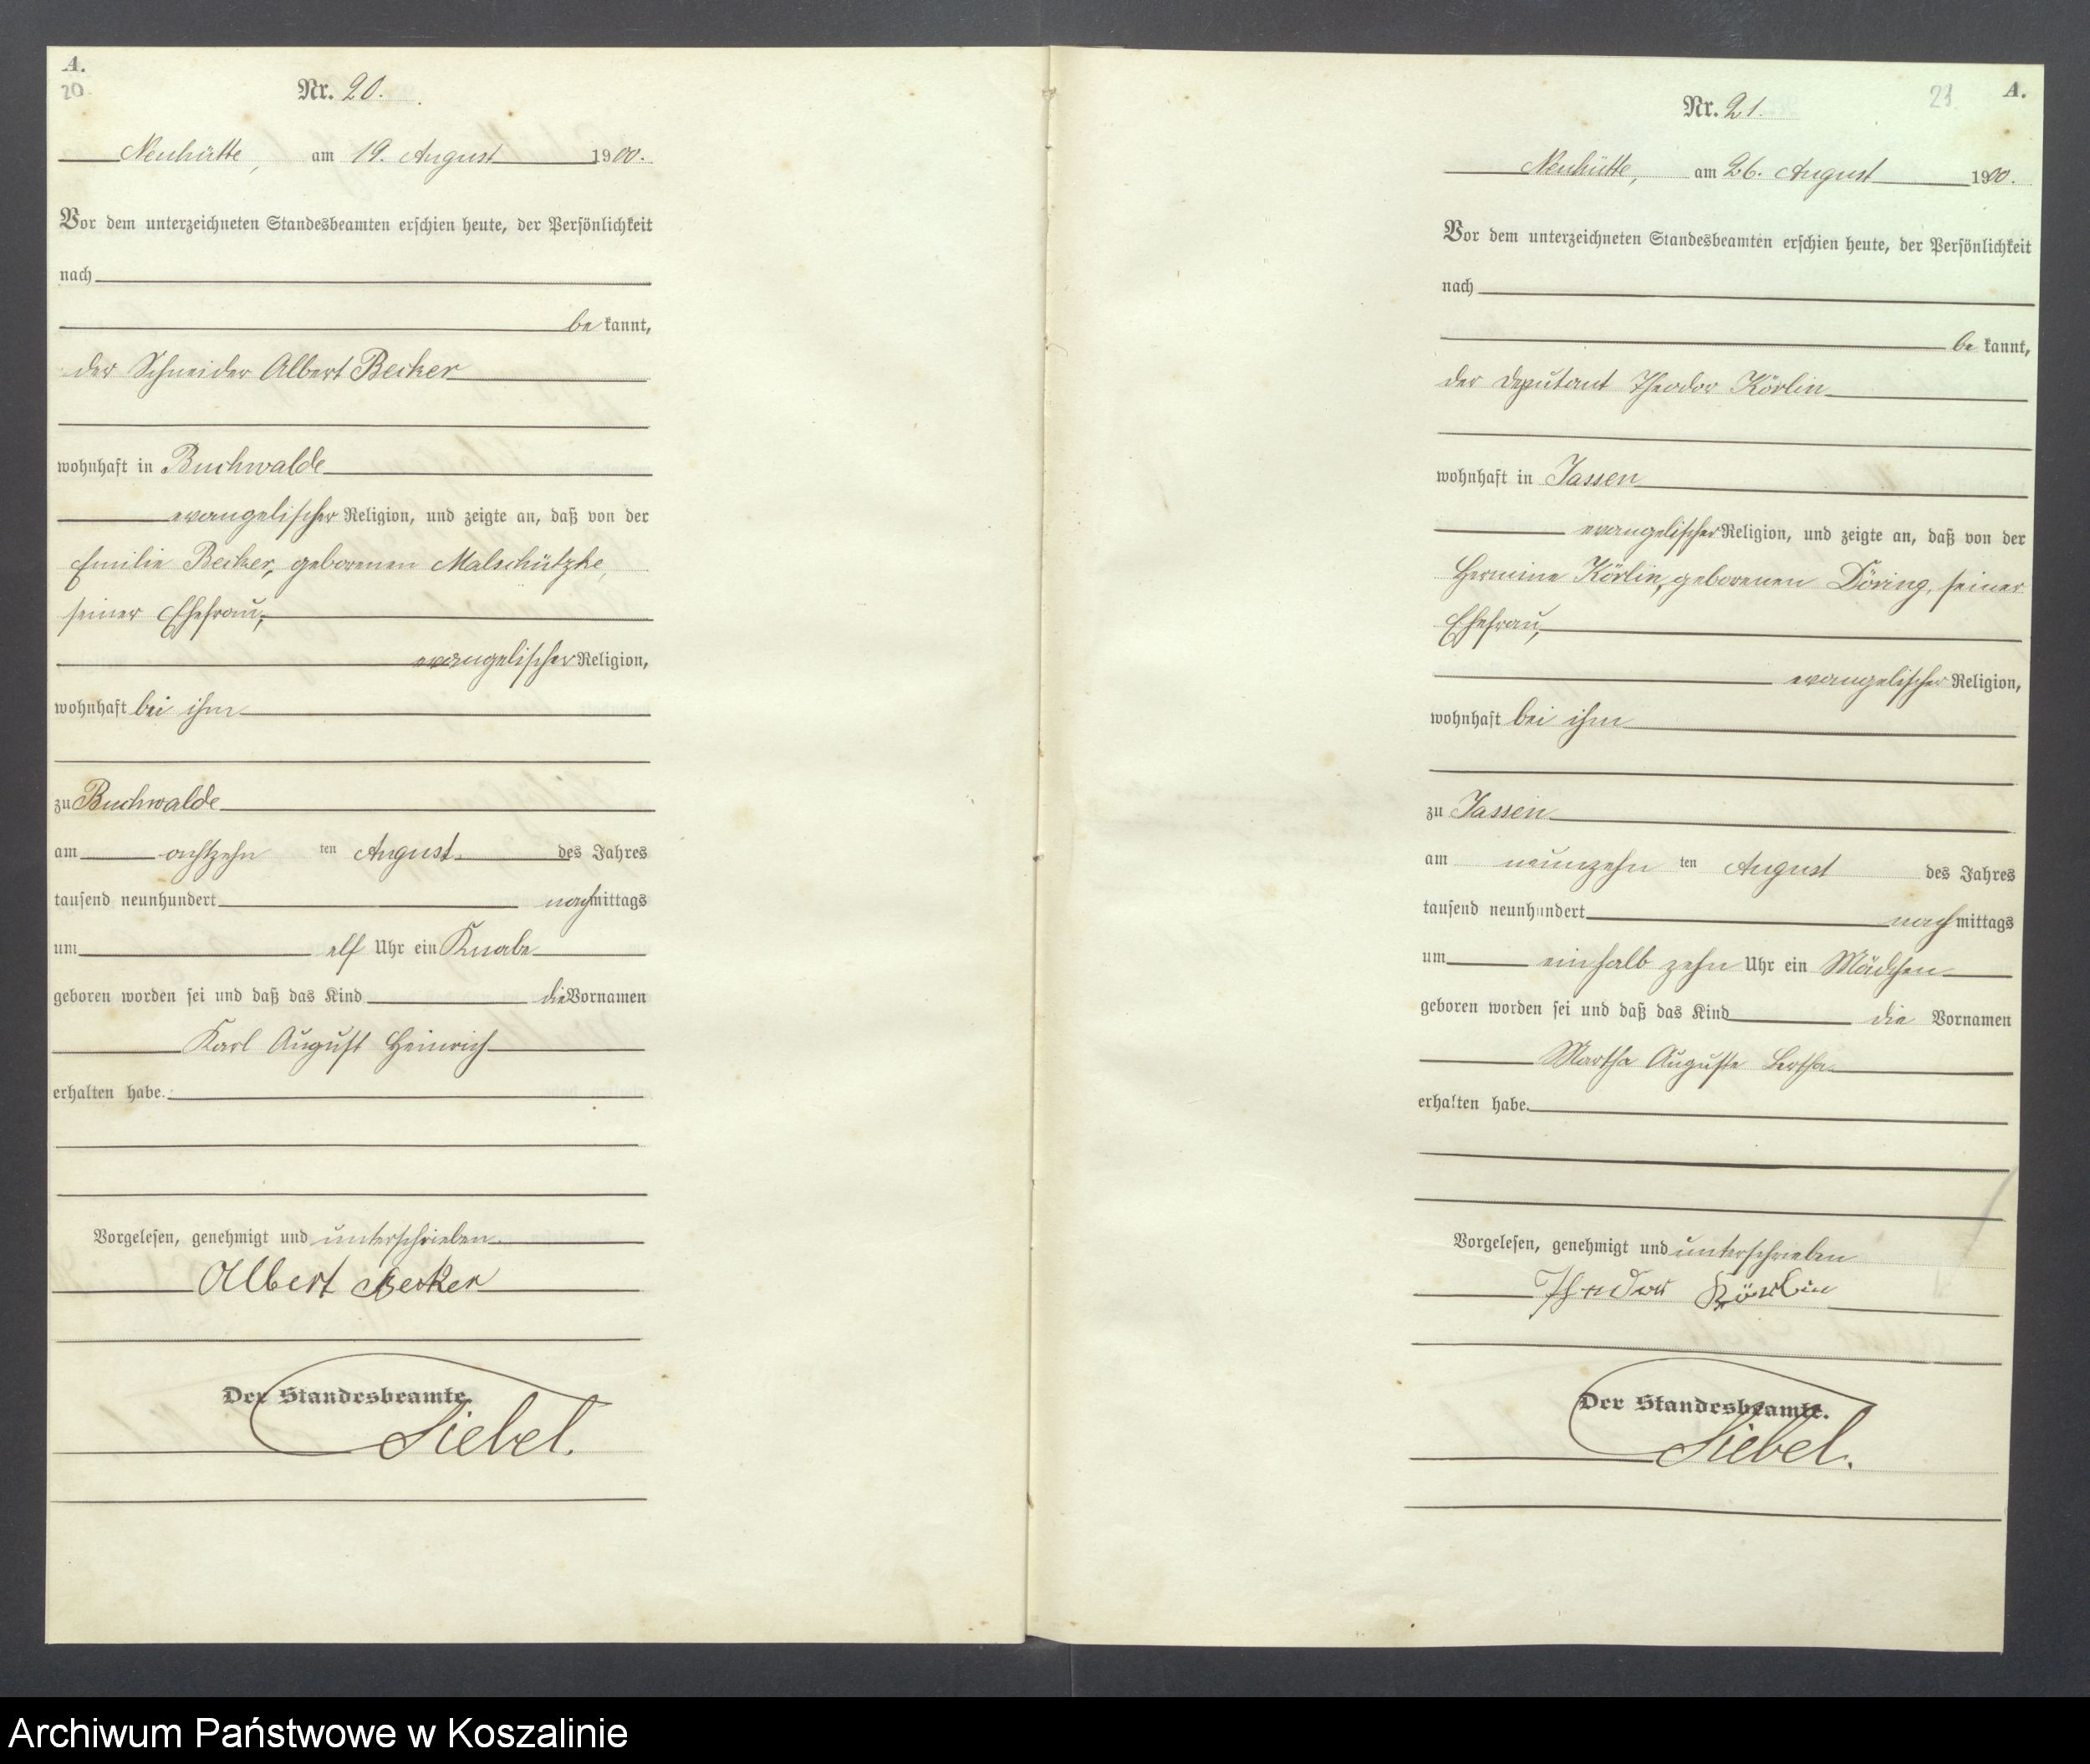 A.
20
Nr. 20.
Neuhütte, am 19. August 1900.
Vor dem unterzeichneten Standesbeamten erschien heute, der Persönlichkeit
nach
be kannt,
der Schneider Albert Becker
wohnhaft in Buchwalde
evangelischer Religion, und zeigte an, daß von der
Emilie Becker, geborenen Malschützke,
seiner Ehefrau,
evangelischer Religion,
wohnhaft bei ihm
zu Buchwalde
am achtzehn ten August des Jahres
tausend neunhundert nachmittags
um elf Uhr ein Knabe
geboren worden sei und daß das Kind die Vornamen
Karl August Heinrich
erhalten habe.
Vorgelesen, genehmigt und unterschrieben
Albert Becker
Der Standesbeamte.
Siebel.
21 A.
Nr. 21.
Neuhütte, am 26. August 1900.
Vor dem unterzeichneten Standesbeamten erschien heute, der Persönlichkeit
nach
be kannt,
der Deputant Theodor Körlin
wohnhaft in Jassen
evangelischer Religion, und zeigte an, daß von der
Hermine Körlin, geborenen Döring, seiner
Ehefrau,
evangelischer Religion,
wohnhaft bei ihm
zu Jassen
am neunzehn ten August des Jahres
tausend neunhundert nach mittags
um einhalb zehn Uhr ein Mädchen
geboren worden sei und daß das Kind die Vornamen
Martha Auguste Bertha
erhalten habe.
Vorgelesen, genehmigt und unterschrieben
Theodor Körlin
Der Standesbeamte.
Siebel.
Archiwum Państwowe w Koszalinie